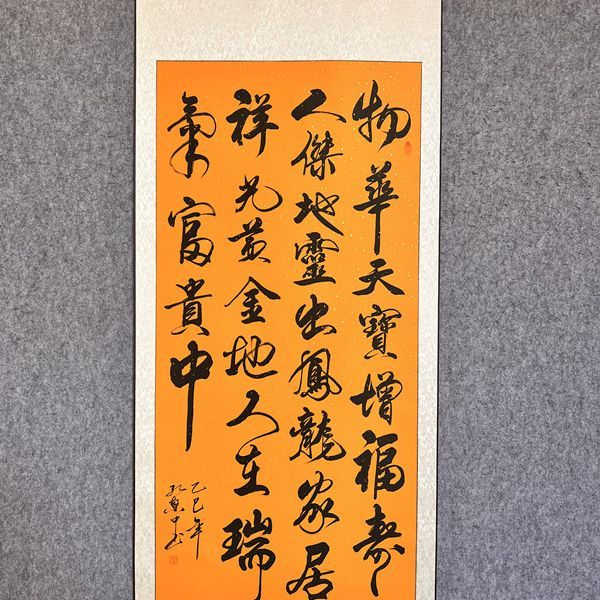 物華天寶增福壽
人傑地靈出鳳龍家居
祥光黄金地人在瑞
氣富貴中
乙巳年